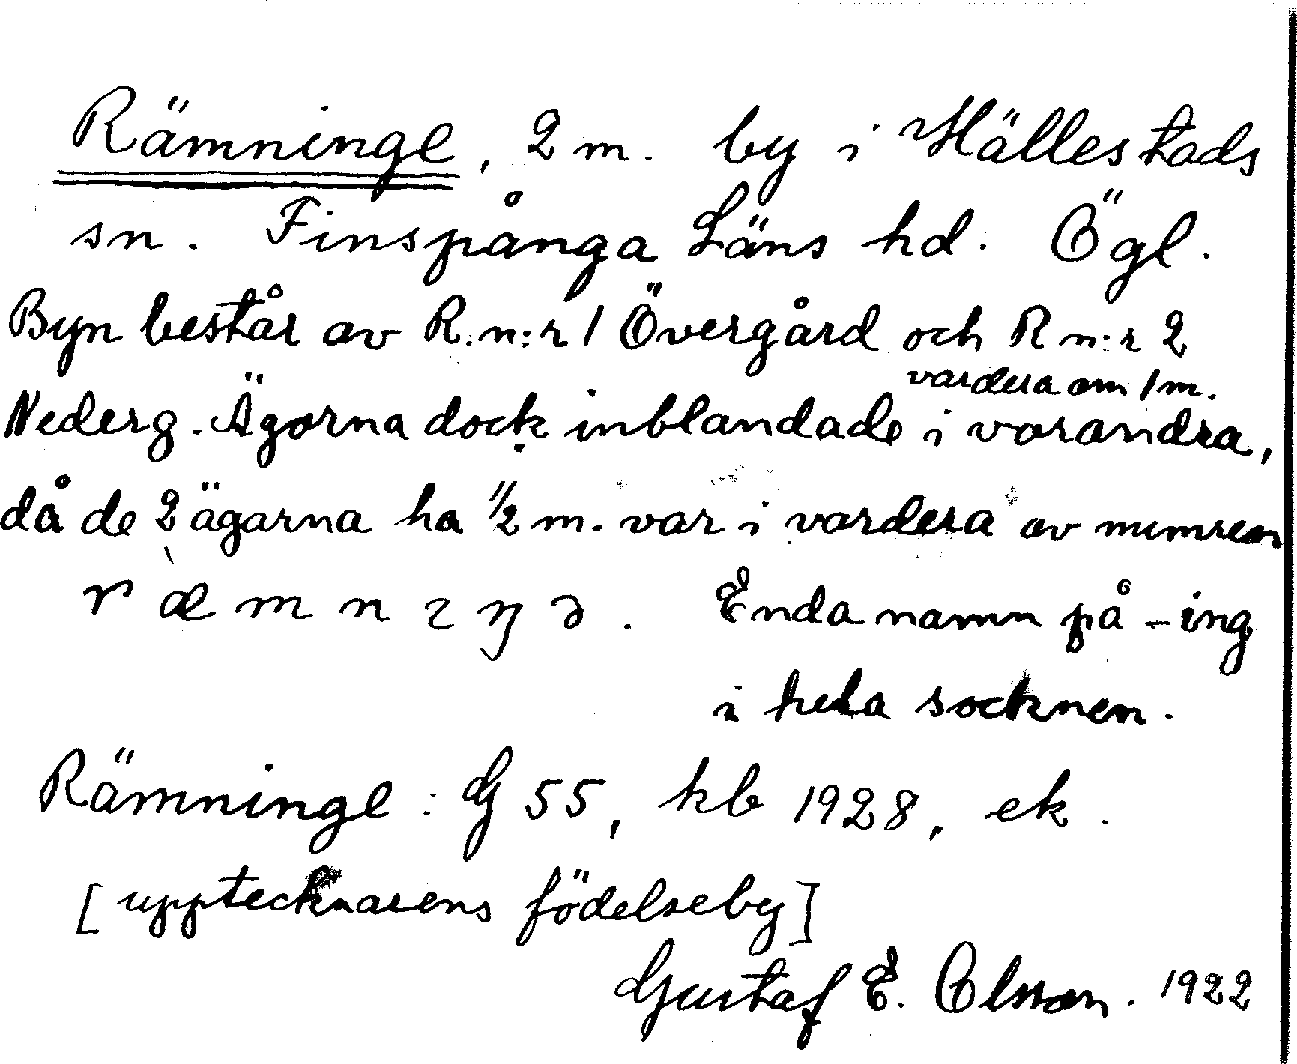 Rämninge, 2 m. by i Hällestads
sn. Finspånga Läns hd. Ögl.
Byn består av R. n:r 1 Övergård och R n:r 2
vardera om 1 m.
Nederg. Ägorna dock inblandade i varandra,
då de 2 ägarna ha 1/2 m. var i vardera av numren
Enda namn på -ing
i hela socknen.
Rämninge: G 55, kb 1928, ek.
[upptecknarens födelseby]
Gustaf E. Olsson. 1922